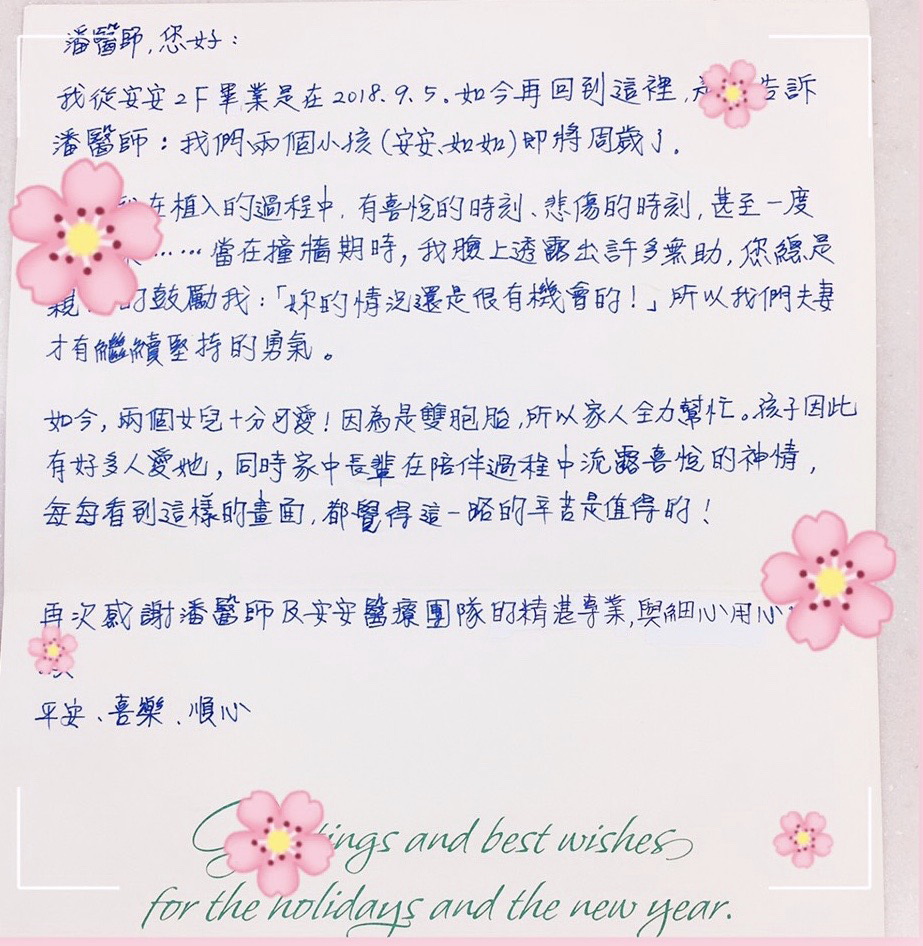 潘醫師,您好:
我從安安2F畢業是在2018.9.5。如今再回到這裡,告訴
潘醫師:我們兩個小孩(安安、如如)即將周歲了。
在植入的過程中,有喜悅的時刻、悲傷的時刻,甚至一度
……當在撞牆期時,我臉上透露出許多無助,您總是
親的鼓勵我:「妳的情況還是很有機會的!」所以我們夫妻
才有繼續堅持的勇氣。
如今,兩個女兒十分可愛!因為是雙胞胎,所以家人全力幫忙。孩子因此
有好多人愛她,同時家中長輩在陪伴過程中流露喜悅的神情,
每每看到這樣的畫面,都覺得這一路的辛苦是值得的!
再次感謝潘醫師及安安醫療團隊的精湛專業,與細心用心
平安、喜樂、順心
ings and best wishes
for the holidays and the new year.